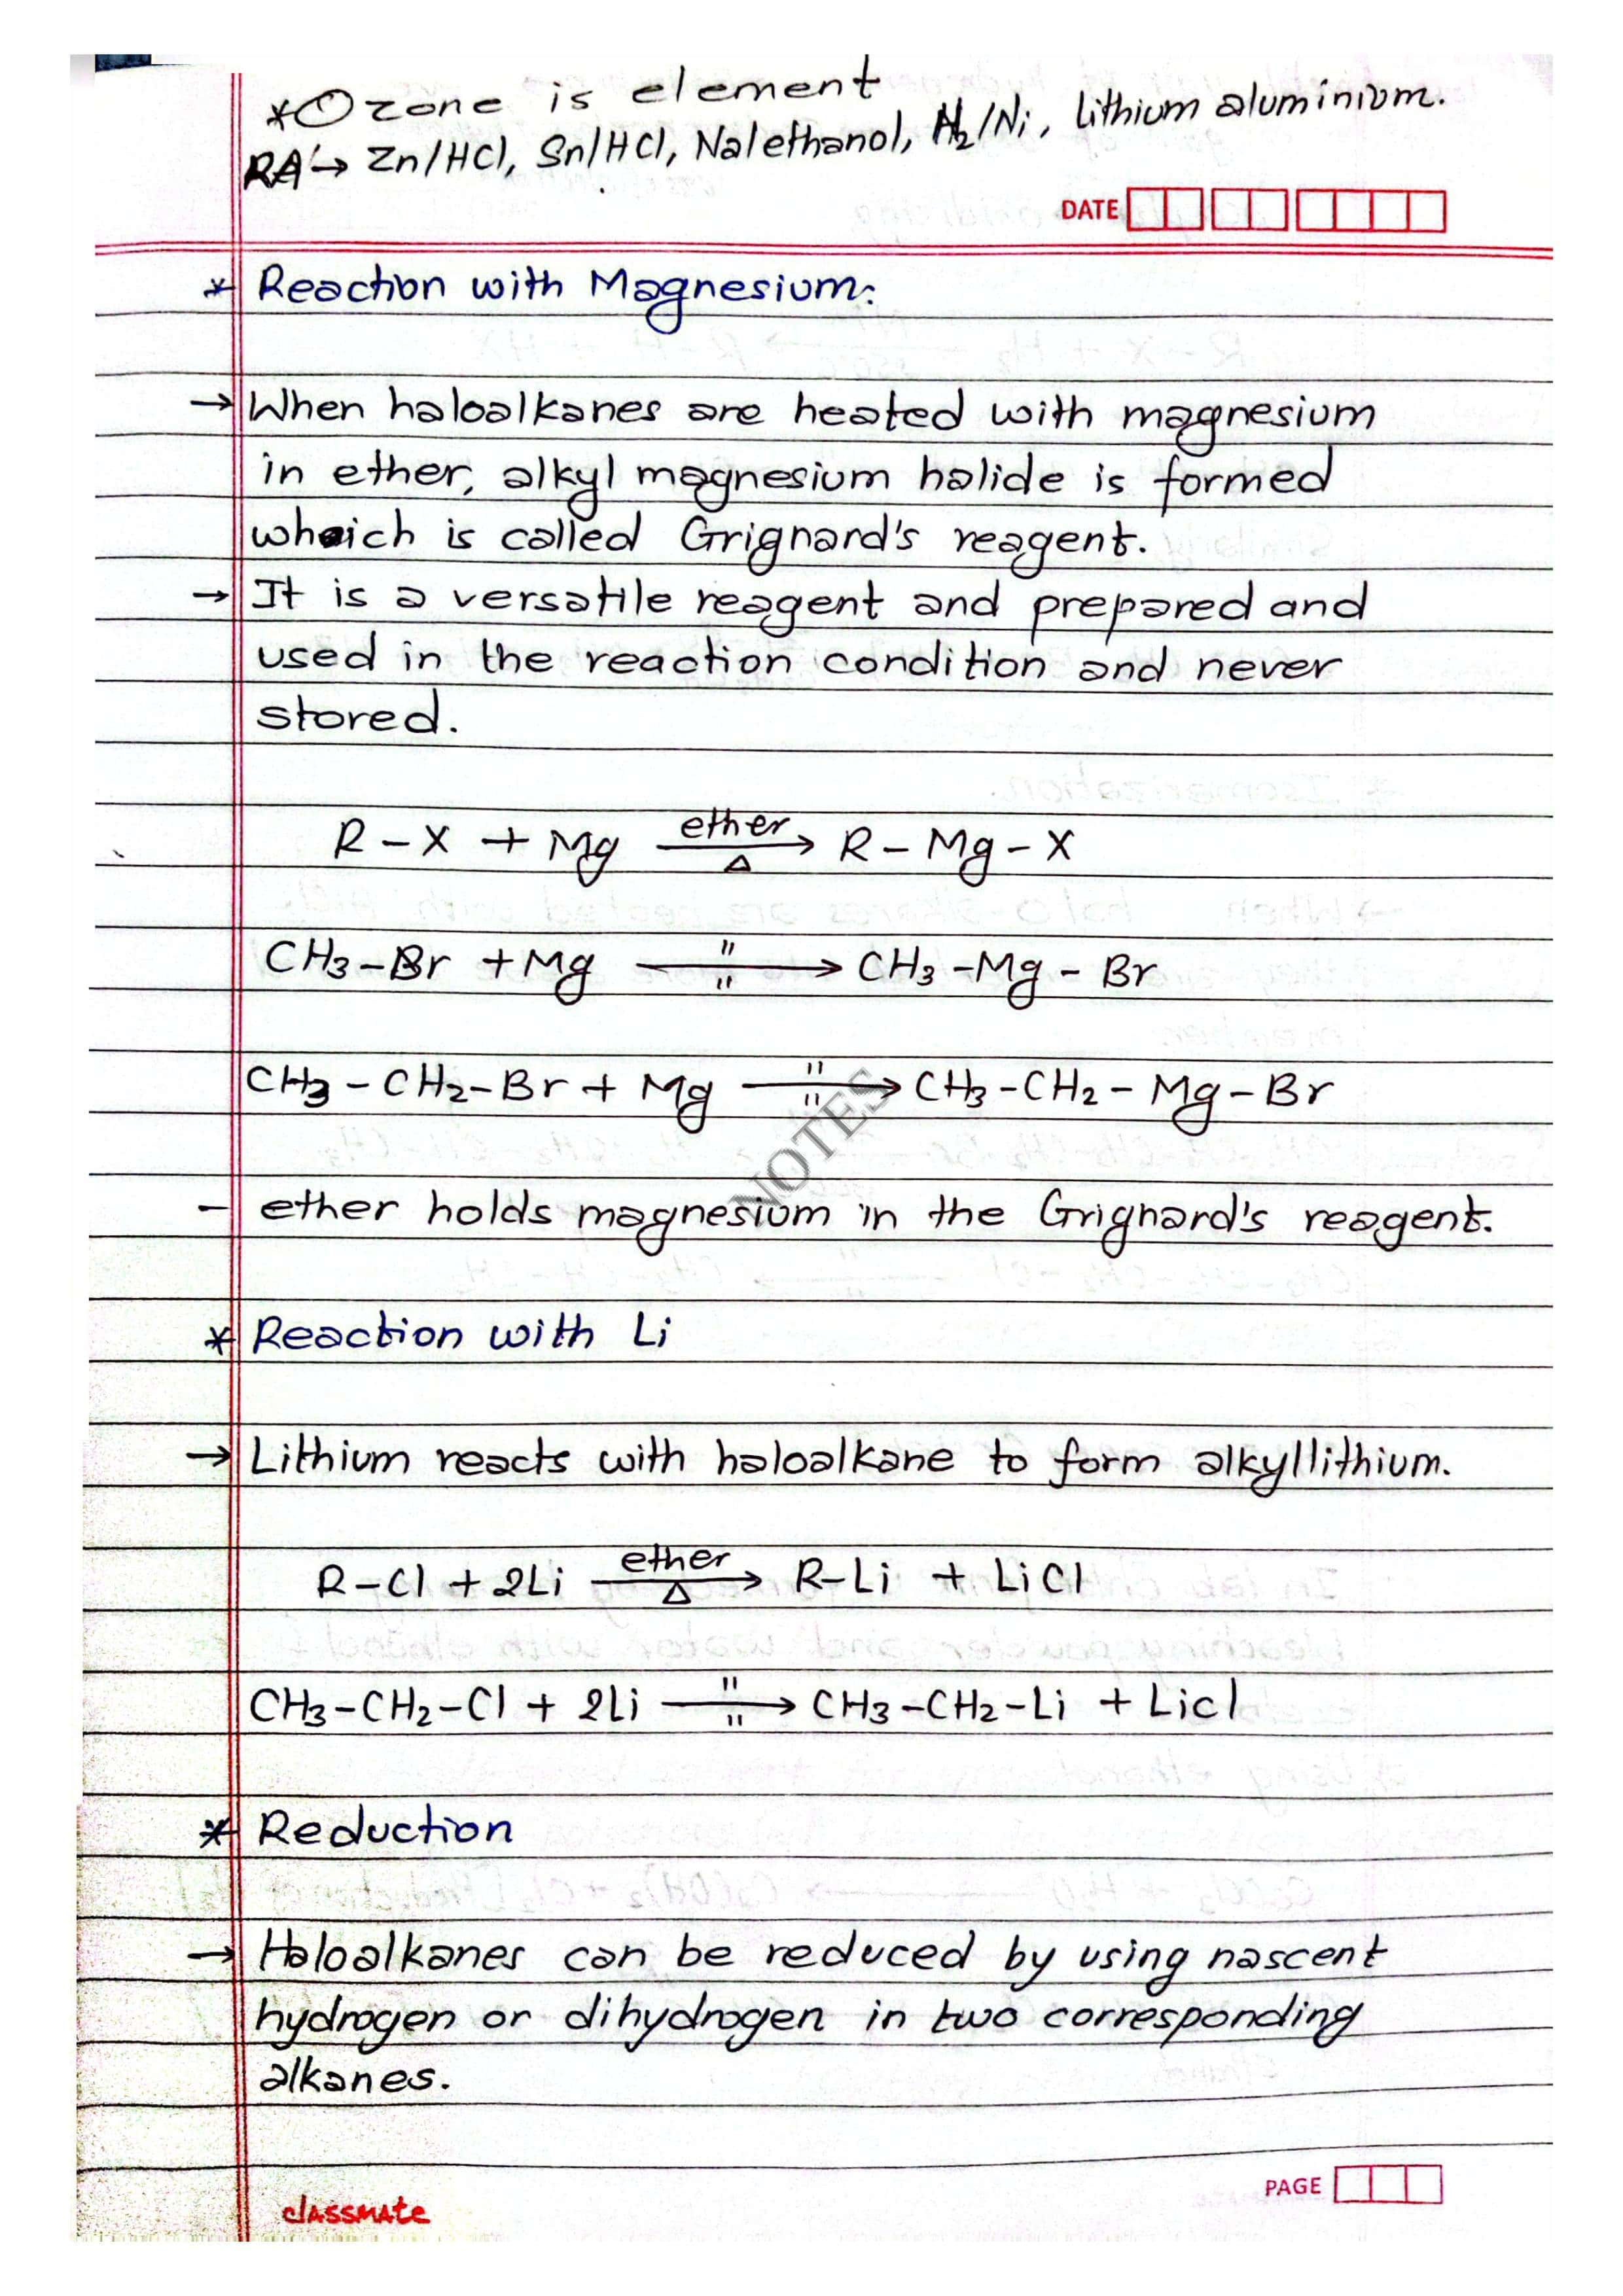 *Ozone is element
RA'→ Zn/HCl, Sn/HCl, Na/ethanol, H₂/Ni, lithium aluminium.
DATE
* Reaction with Magnesium:
→ When haloalkanes are heated with magnesium
in ether, alkyl magnesium halide is formed
which is called Grignard's reagent.
→ It is a versatile reagent and prepared and
used in the reaction condition and never
stored.
R-X + Mg ether/Δ→ R-Mg-X
CH₃-Br + Mg "/"→ CH₃-Mg-Br
CH₃-CH₂-Br + Mg "/"→ CH₃-CH₂-Mg-Br
NOTES
- ether holds magnesium in the Grignard's reagent.
* Reaction with Li
→ Lithium reacts with haloalkane to form alkyllithium.
R-Cl + 2Li ether/Δ→ R-Li + LiCl
CH₃-CH₂-Cl + 2Li "/"→ CH₃-CH₂-Li + Licl
* Reduction
→ Haloalkanes can be reduced by using nascent
hydrogen or dihydrogen in two corresponding
alkanes.
PAGE
classmate